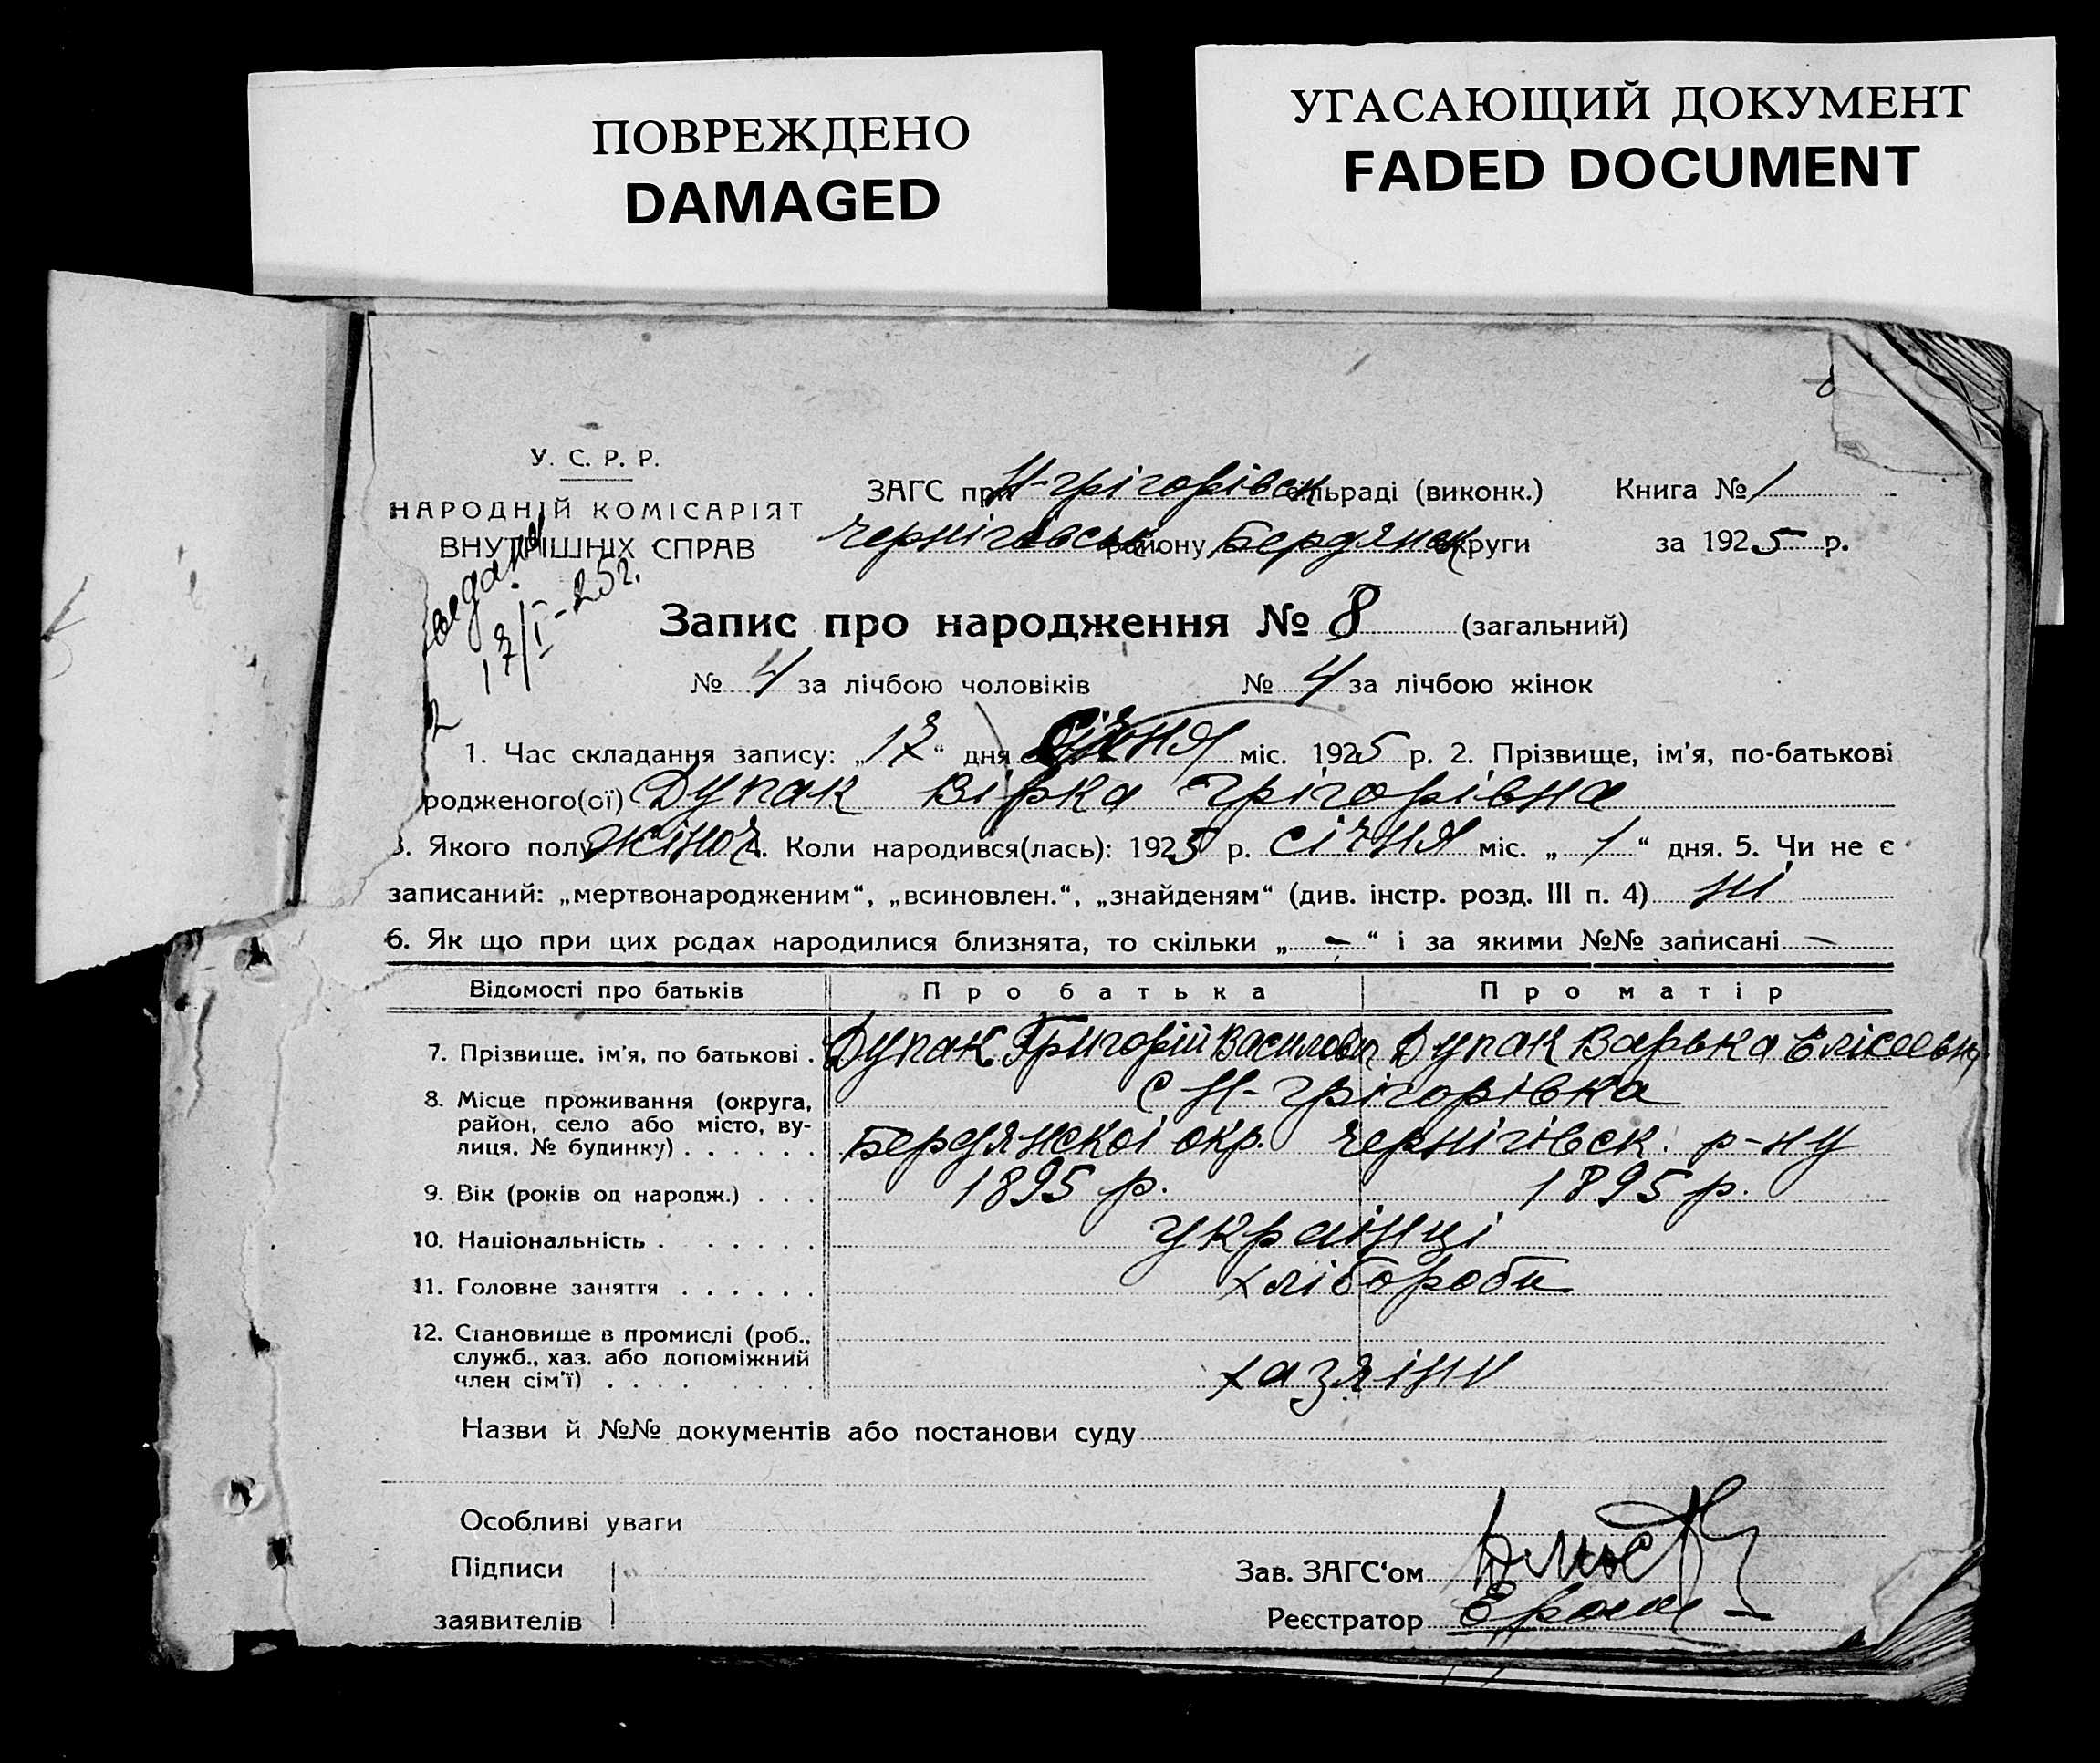 ПОВРЕЖДЕНО
DAMAGED
УГАСАЮЩИЙ ДОКУМЕНТ
FADED DOCUMENT
У. С. Р. Р.
НАРОДНІЙ КОМІСАРІЯТ
ВНУТРІШНІХ СПРАВ
ЗАГС при Н-Грігорівськ сільраді (виконк.) Книга № 1
Чернігівськ. району Бердянськ округи за 1925 р.
17/I-25 г.
Запис про народження № 8 (загальний)
№ 4 за лічбою чоловіків № 4 за лічбою жінок
1. Час складання запису: „17“ дня січня міс. 1925 р. 2. Прізвище, ім'я, по-батькові
родженого(ої) Дупак Вірка Грігорівна
3. Якого полу жіноч. Коли народився(лась): 1925 р. січня міс. „1“ дня. 5. Чи не є
записаний: „мертвонародженим“, „всиновлен.“, „знайденям“ (див. інстр. розд. III п. 4) ні
6. Як що при цих родах народилися близнята, то скільки „-“ і за якими №№ записані -
Відомості про батьків Про батька Про матір
7. Прізвище, ім'я, по батькові . Дупак Григорій Василович Дупак Варька Елісеевна
8. Місце проживання (округа, район, село або місто, вулиця, № будинку) . . . . . . с Н-Грігорівка
Бердянскоі окр. Чернігівск. р-ну
9. Вік (років од народж.) . . . 1895 р. 1895 р.
10. Національність . . . . . . українці
11. Головне заняття . . . . . . хлібороби
12. Становище в промислі (роб., служб., хаз. або допоміжний член сім'ї) . . . . хазяіни
Назви й №№ документів або постанови суду
Особливі уваги
Підписи
заявителів
Зав. ЗАГС'ом
Реєстратор